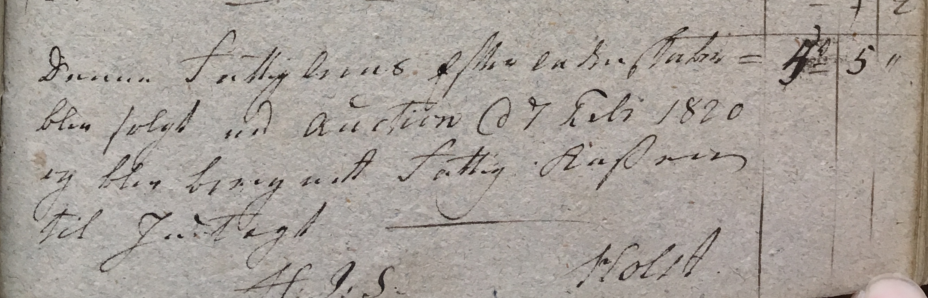 Denne Fattiglems Efterladenskaber = 4 5 "
blev solgt ved Auction d 7 Febr 1820
og blev beregnett Fattig Kaßen
til Indtægt
H. J. S. Holst